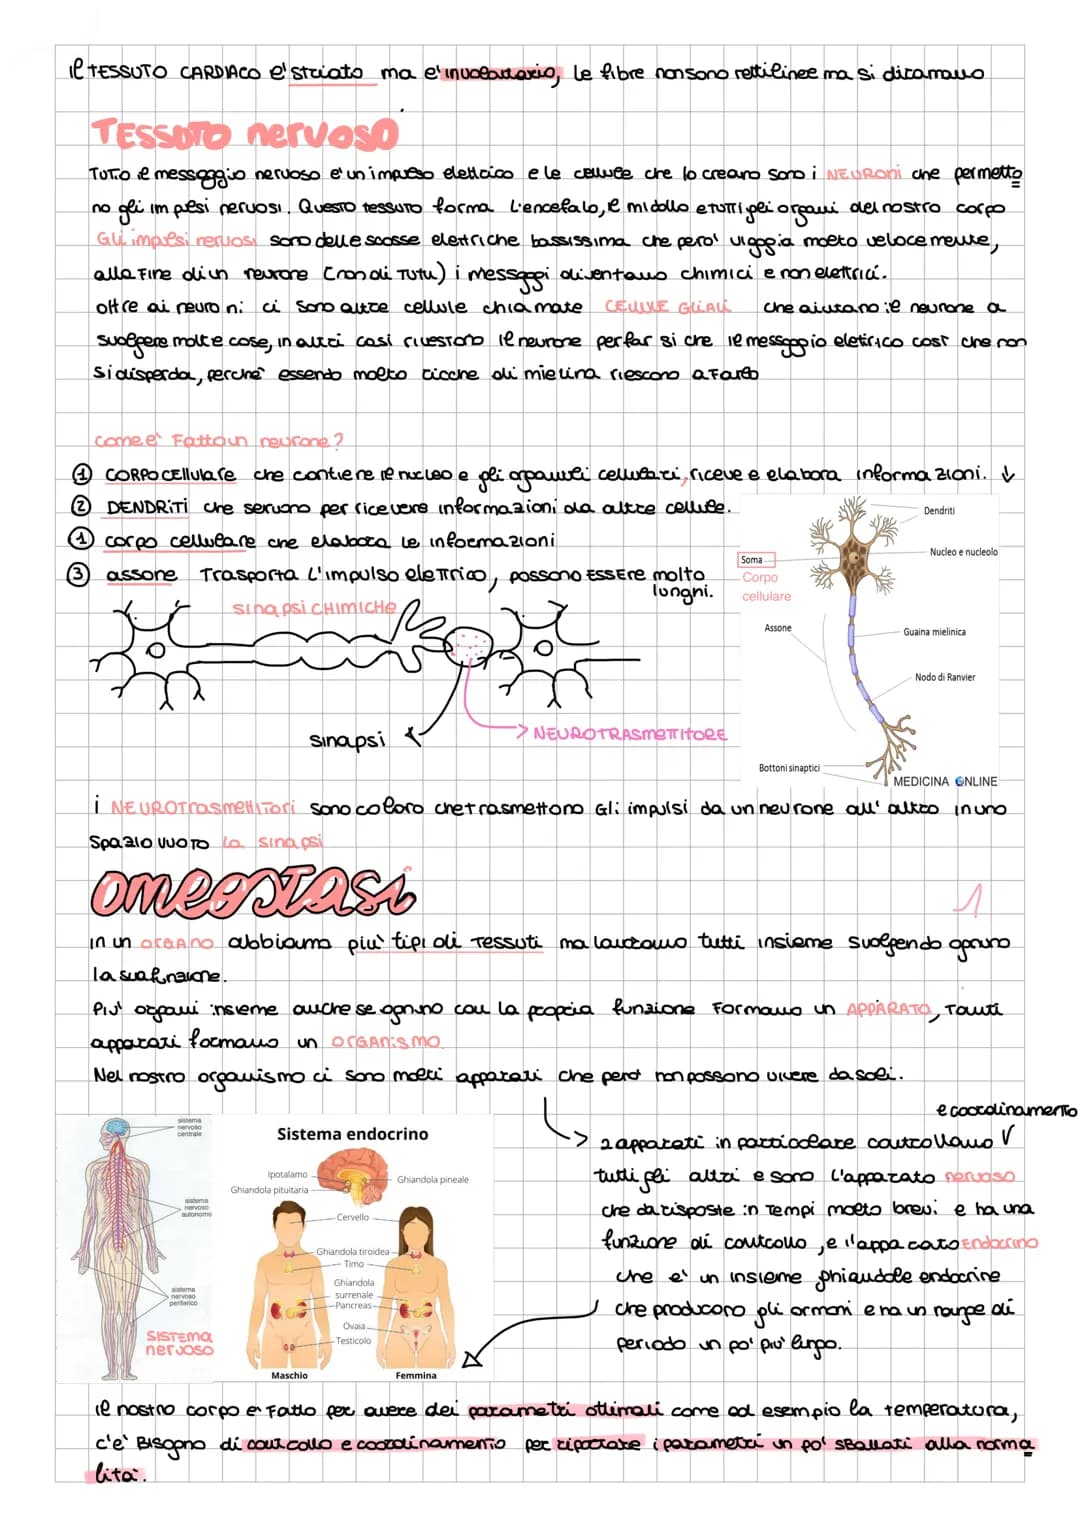 il TESSUTO CARDIACO e' striato ma e' involontario, le fibre non sono rettilinee ma si diramano
TESSUTO nervoso
TUTTO il messaggio nervoso e' un impulso elettrico e le cellule che lo creano sono i NEURONI che permetto
no gli impulsi nervosi. QUESTO TESSUTO forma L'encefalo, il midollo e TUTTI gli organi del nostro corpo
Gli impulsi nervosi sono delle scosse elettriche bassissima che pero' viaggia molto velocemente,
alla Fine di un neurone (non di TUTTI) i messaggi diventano chimici e non elettrici.
oltre ai neuroni ci sono altre cellule chiamate CELLULE GLIALI che aiutano il neurone a
svolgere molte cose, in altri casi rivestono il neurone per far si che il messaggio elettrico cosi che non
si disperda, perche' essendo molto ricche di mielina riescono a Farlo
come e' Fatto un neurone?
1 CORPO CELLULARE che contiene il nucleo e gli organuli cellulari, riceve e elabora informazioni. ↓
2 DENDRITI che servono per ricevere informazioni da altre cellule.
1 corpo cellulare che elabora le informazioni
3 assone Trasporta L'impulso eleTTrico, possono ESSEre molto
lunghi.
sinapsi CHIMICHE
sinapsi
NEUROTRASMETTITORE
Dendriti
Nucleo e nucleolo
Soma
Corpo
cellulare
Assone
Guaina mielinica
Nodo di Ranvier
Bottoni sinaptici
MEDICINA ONLINE
i NEUROTrasmettitori sono coloro che trasmettono Gli impulsi da un neurone all' altro in uno
SPAZIO VUOTO la sinapsi
omeostasi
1
in un ORGANO abbiamo piu' tipi di Tessuti ma lavorano tutti insieme svolgendo ognuno
la sua funzione.
Piu' organi insieme anche se ognuno con la propria funzione Formano un APPARATO, Tanti
apparati formano un ORGANISMO.
Nel nostro organismo ci sono molti apparati che pero' non possono vivere da soli.
e coordinamento
2 apparati in particolare controllano
tutti gli altri e sono L'apparato nervoso
che da risposte in Tempi molto brevi e ha una
funzione di controllo, e l'apparato Endocrino
che e' un insieme ghiandole endocrine
che producono gli ormoni e ha un range di
periodo un po' piu' lungo.
sistema
nervoso
centrale
sistema
nervoso
autonomo
sistema
nervoso
periferico
SISTEMA
nervoso
Sistema endocrino
Ipotalamo
Ghiandola pituitaria
Ghiandola pineale
Cervello
Ghiandola tiroidea
Timo
Ghiandola
surrenale
Pancreas
Ovaia
Testicolo
Maschio
Femmina
il nostro corpo e' Fatto per avere dei parametri ottimali come ad esempio la temperatura,
c'e' Bisogno di controllo e coordinamento per riportare i parametri un po' sballati alla norma
lita'.